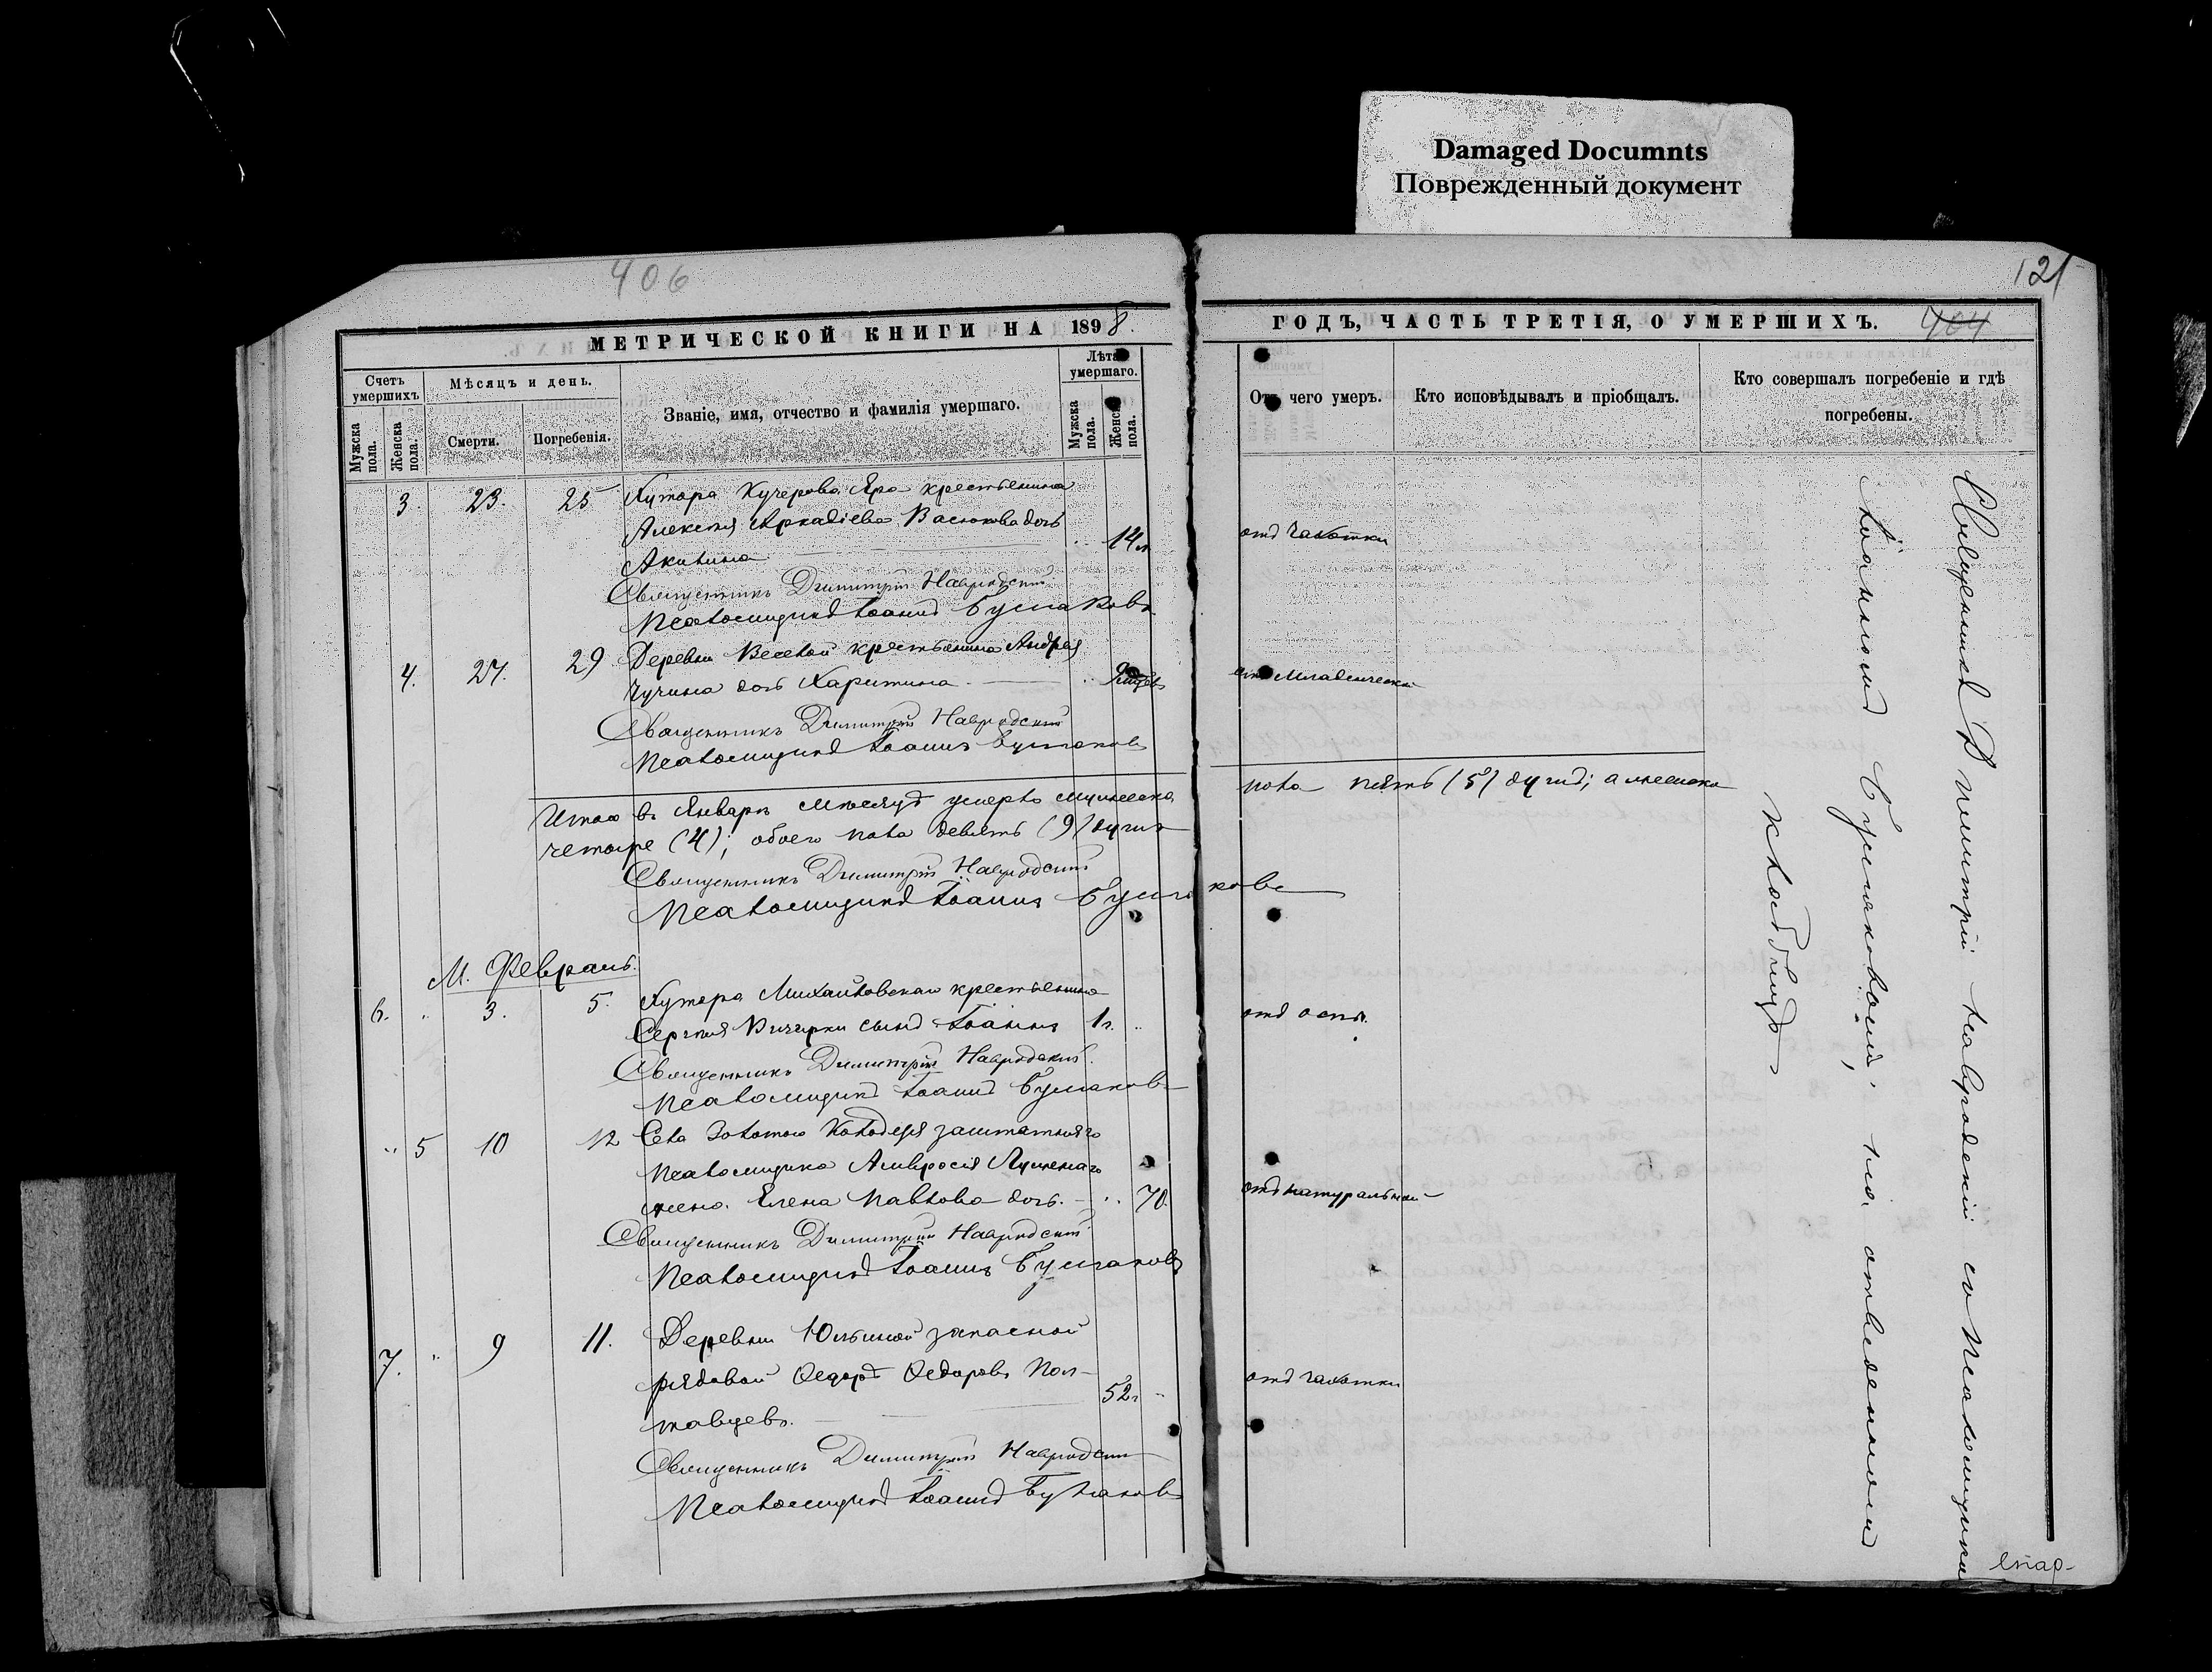 Damaged Documnts
Поврежденный документ
406
121
МЕТРИЧЕСКОЙ КНИГИ НА 1898.
ГОДЪ, ЧАСТЬ ТРЕТІЯ, О УМЕРШИХЪ. 404
Счетъ умершихъ
Мужска пола.
Женска пола.
Мѣсяцъ и день.
Смерти.
Погребенія.
Званіе, имя, отчество и фамилія умершаго.
Лѣта умершаго.
Мужска пола.
Женск пола.
Отъ чего умеръ.
Кто исповѣдывалъ и пріобщалъ.
Кто совершалъ погребеніе и гдѣ погребены.
3. 23. 25 Хутора Кучерова Яра крестьянина
Алексѣя Аркадіева Васюкова дочь
Акилина 14 л. отъ чахотки
Священникъ Димитрій Навродскій
Псаломщикъ Іоаннъ Булгаковъ
4. 27. 29 Деревни Веселой крестьянина Андрея
Чучина дочь Харитина отъ младенческой
Священникъ Димитрій Навродскій
Псаломщикъ Іоаннъ Булгаковъ
Итого въ Январѣ мѣсяцѣ умерло мужеска пола пять (5) душъ; а женска
четыре (4); обоего пола девять (9) душъ
Священникъ Димитрій Навродскій
Псаломщикъ Іоаннъ Булгаковъ
М. Февраль.
6. " 3. 5. Хутора Михайловскаго крестьянина
Сергѣя Вичирки сынъ Іоаннъ 1 г. " отъ оспы.
Священникъ Димитрій Навродскій
Псаломщикъ Іоаннъ Булгаковъ
" 5 10 12 Села Золотого Колодезя заштатнаго
псаломщика Амвросія Луценаго
жена Елена Павлова дочь. 70. отъ натуральной
Священникъ Димитрій Навродскій
Псаломщикъ Іоаннъ Булгаковъ
7. " 9 11. Деревни Юльиной запасной
рядовой Ѳедоръ Ѳедоровъ Пол-
тавцевъ. 52 г. " отъ чахотки
Священникъ Димитрій Навродскій
Псаломщикъ Іоаннъ Булгаковъ
Священникъ Димитрій Навродскій съ псаломщикомъ
Іоанномъ Булгаковымъ, на отведенномъ
кладбищѣ